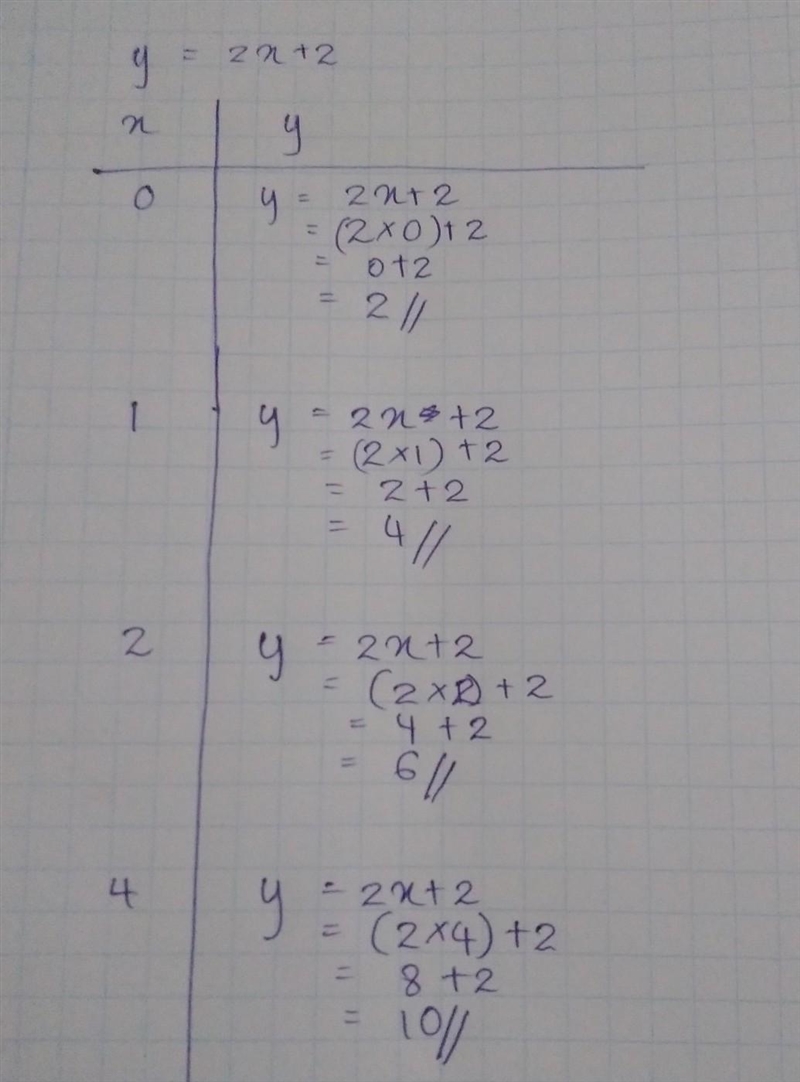 y = 2x+2
x y
0 y = 2x+2
= (2×0)+2
= 0+2
= 2//
1 y = 2x +2
= (2×1) +2
= 2+2
= 4//
2 y = 2x+2
= (2×2) +2
= 4 +2
= 6//
4 y = 2x+2
= (2×4) +2
= 8 +2
= 10//